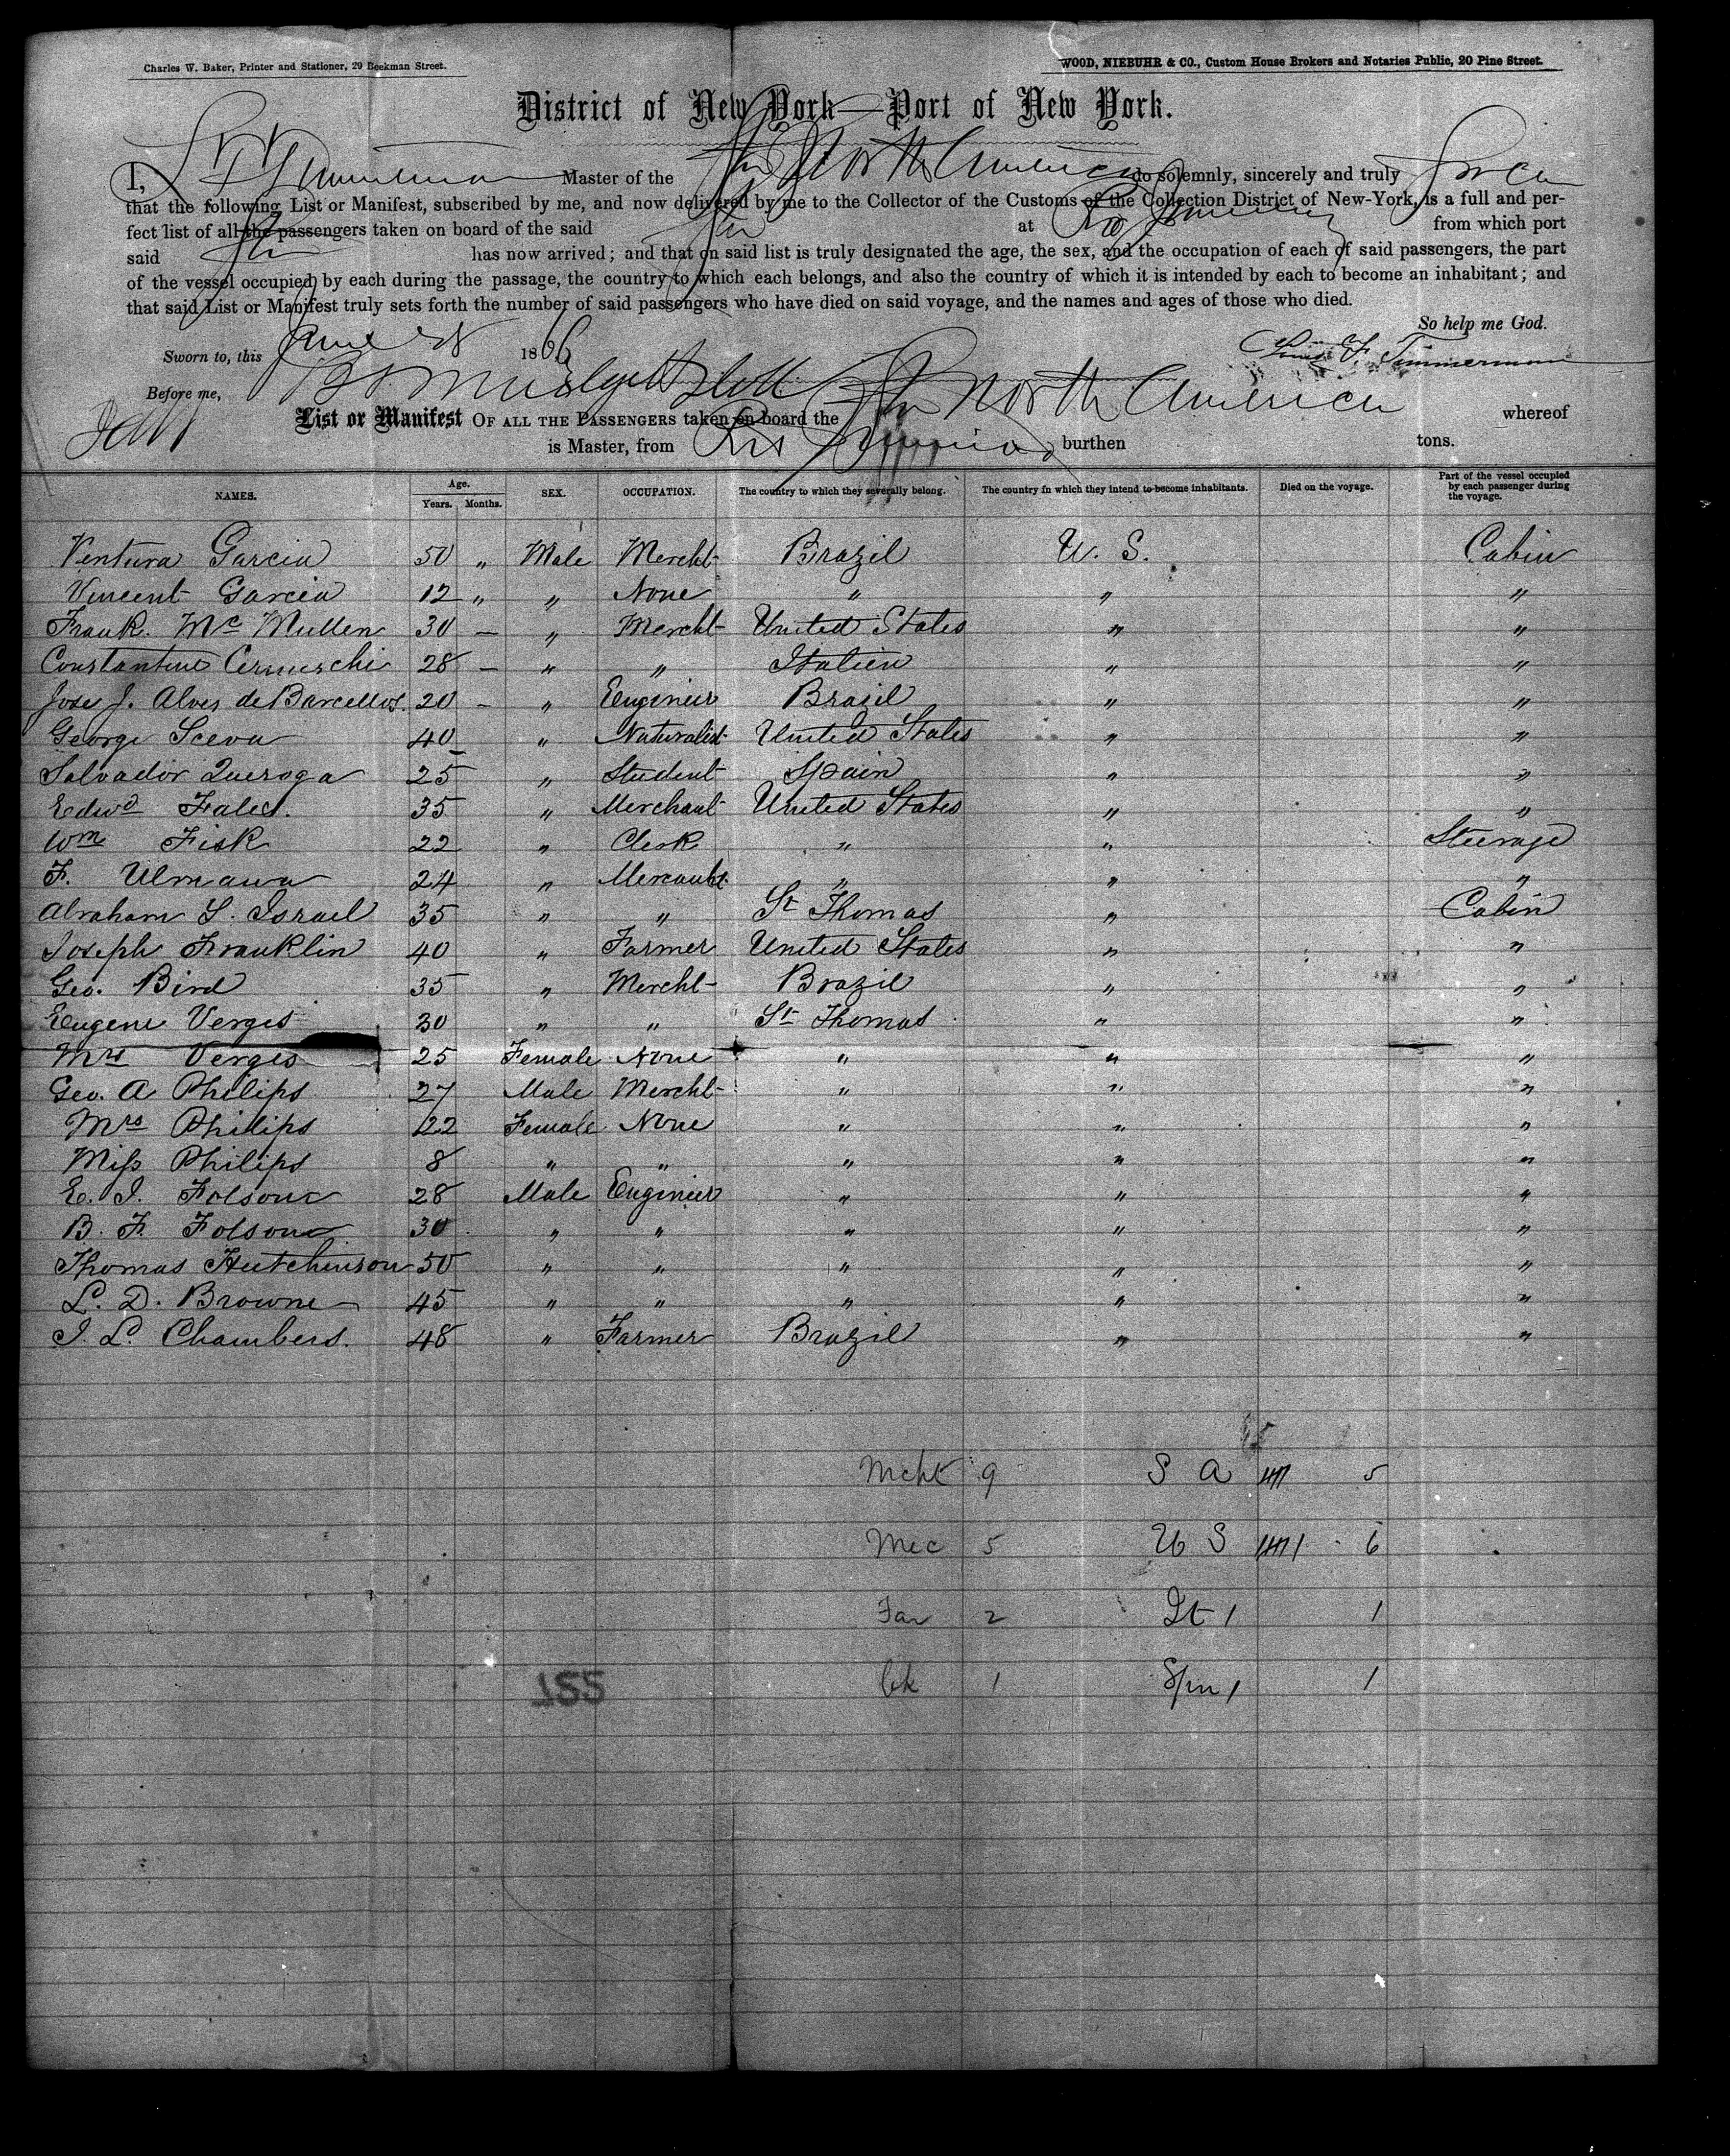 Charles W. Baker, Printer and Stationer, 29 Beekman Street.
WOOD, NIEBUHR & CO., Custom House Brokers and Notaries Public, 20 Pine Street.
District of New York—Port of New York.
I, L F Timmerman Master of the Str North America do solemnly, sincerely and truly swear
that the following List or Manifest, subscribed by me, and now delivered by me to the Collector of the Customs of the Collection District of New-York, is a full and per-
fect list of all the passengers taken on board of the said Str at Rio Janeiro from which port
said Str has now arrived; and that on said list is truly designated the age, the sex, and the occupation of each of said passengers, the part
of the vessel occupied by each during the passage, the country to which each belongs, and also the country of which it is intended by each to become an inhabitant; and
that said List or Manifest truly sets forth the number of said passengers who have died on said voyage, and the names and ages of those who died.
So help me God.
Sworn to, this June 28 1866
Louis F. Timmerman
Before me,
List or Manifest OF ALL THE PASSENGERS taken on board the Str North America whereof
is Master, from Rio Janeiro burthen tons.
NAMES. Age. Years. Months. SEX. OCCUPATION. The country to which they severally belong. The country in which they intend to become inhabitants. Died on the voyage. Part of the vessel occupied by each passenger during the voyage.
Ventura Garcia 50 " Male Mercht Brazil U. S. Cabin
Vincent Garcia 12 " " None " " "
Frank Mc Mullen 30 — " Mercht United States " "
Constantine Cernuschi 28 — " " Italien " "
Jose J. Alves de Barcellos. 20 - " Engineer Brasil " "
George Sceva 40 " Naturalist United States " "
Salvador Queroga 25 " Student Spain " "
Edwd Fales. 35 " Merchant United States " "
Wm Fisk 22 " Clerk " " Steerage
F. Ulmann 24 " Mercant. " " "
Abraham S. Israel 35 " " St Thomas " Cabin
Joseph Franklin 40 " Farmer United States " "
Geo. Bird 35 " Mercht Brazil " "
Eugene Verges 30 " " St Thomas " "
Mrs Verges 25 Female None " " "
Geo. A Philips 27 Male Mercht " " "
Mrs Philips 22 Female None " " "
Miss Philips 8 " " " " "
E. I. Folsom 28 Male Engineer " " "
B. F. Folsom 30 " " " " "
Thomas Hutchinson 50 " " " " "
L. D. Browne 45 " " " " "
J. L. Chambers. 48 " Farmer Brazil " "
Mcht 9 S A 5
Mec 5 U S 6
Far 2 It 1 1
Ck 1 Spn 1 1
155